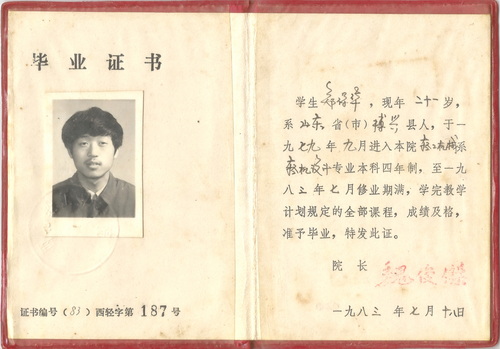 毕业证书
证书编号(83)西轻字第187号
学生郑，现年二十一岁，
系山东省(市)博兴县人，于一
九七九年九月进入本院机械系
专业本科四年制，至一九
八三年七月修业期满，学完教学
计划规定的全部课程，成绩及格，
准予毕业，特发此证。
院 长
一九八三年七月十八日